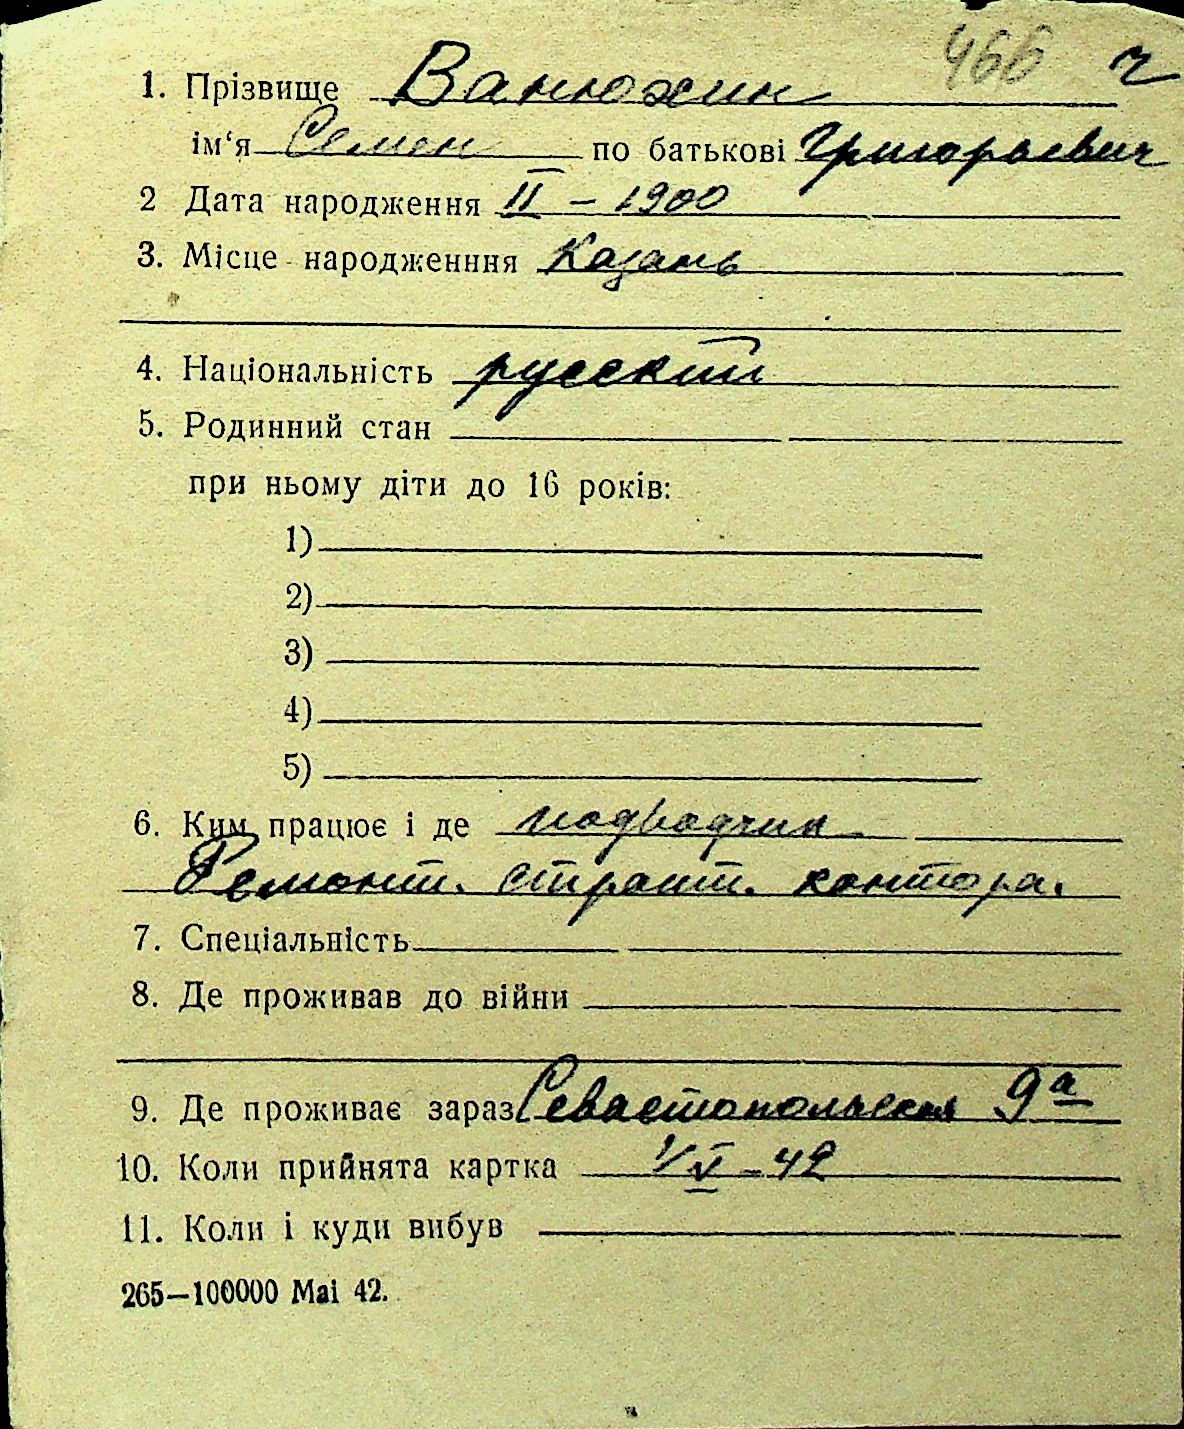 466 ч
1. Прізвище Ванюхин
ім‘я Семен по батькові Григорьевич
2 Дата народження II – 1900
3. Місце народженння Казань
4. Національність русский
5. Родинний стан
при ньому діти до 16 років:
1)
2)
3)
4)
5)
6. Ким працює і де подводчик
Ремонт. строит. контора.
7. Спеціальність
8. Де проживав до війни
9. Де проживає зараз Севастопольская 9а
10. Коли прийнята картка 1/V – 42
11. Коли і куди вибув
265—100000 Mai 42.